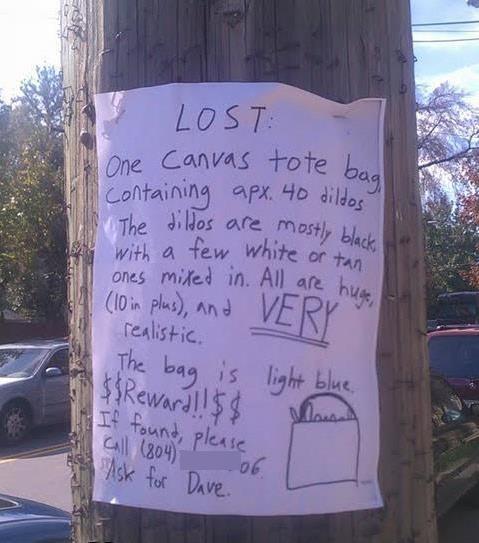 LOST:
One canvas tote bag,
containing apx. 40 dildos
The dildos are mostly black,
with a few white or tan
ones mixed in. All are huge,
(10 in plus), and VERY
realistic.
The bag is light blue.
$$Reward!!$$
If found, please
call (804) 06.
Ask for Dave.